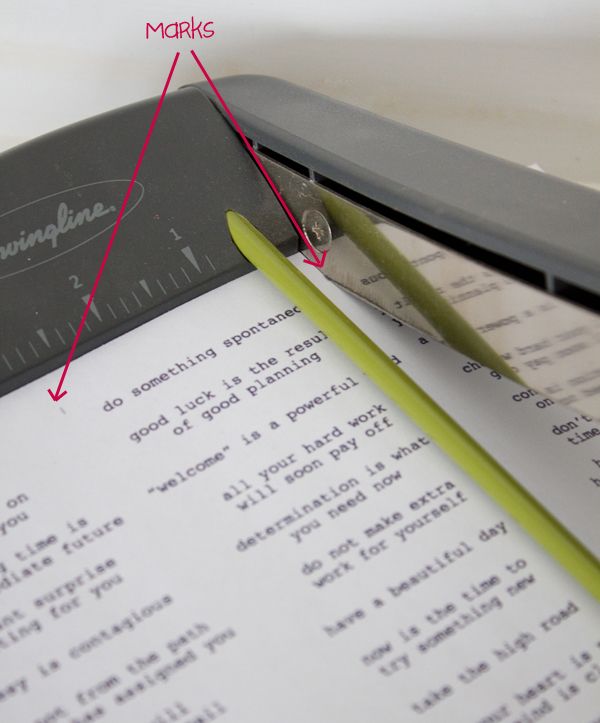 marks
wingline
1
2
do something spontaneo
good luck is the resul
of good planning
"welcome" is a powerful
all your hard work
will soon pay off
determination is what
you need now
do not make extra
work for yourself
have a beautiful day
now is the time to
try something new
take the high road
heart is
on
you
time is
diate future
surprise
ting for you
is contagious
from the path
has assigned you
don't
time